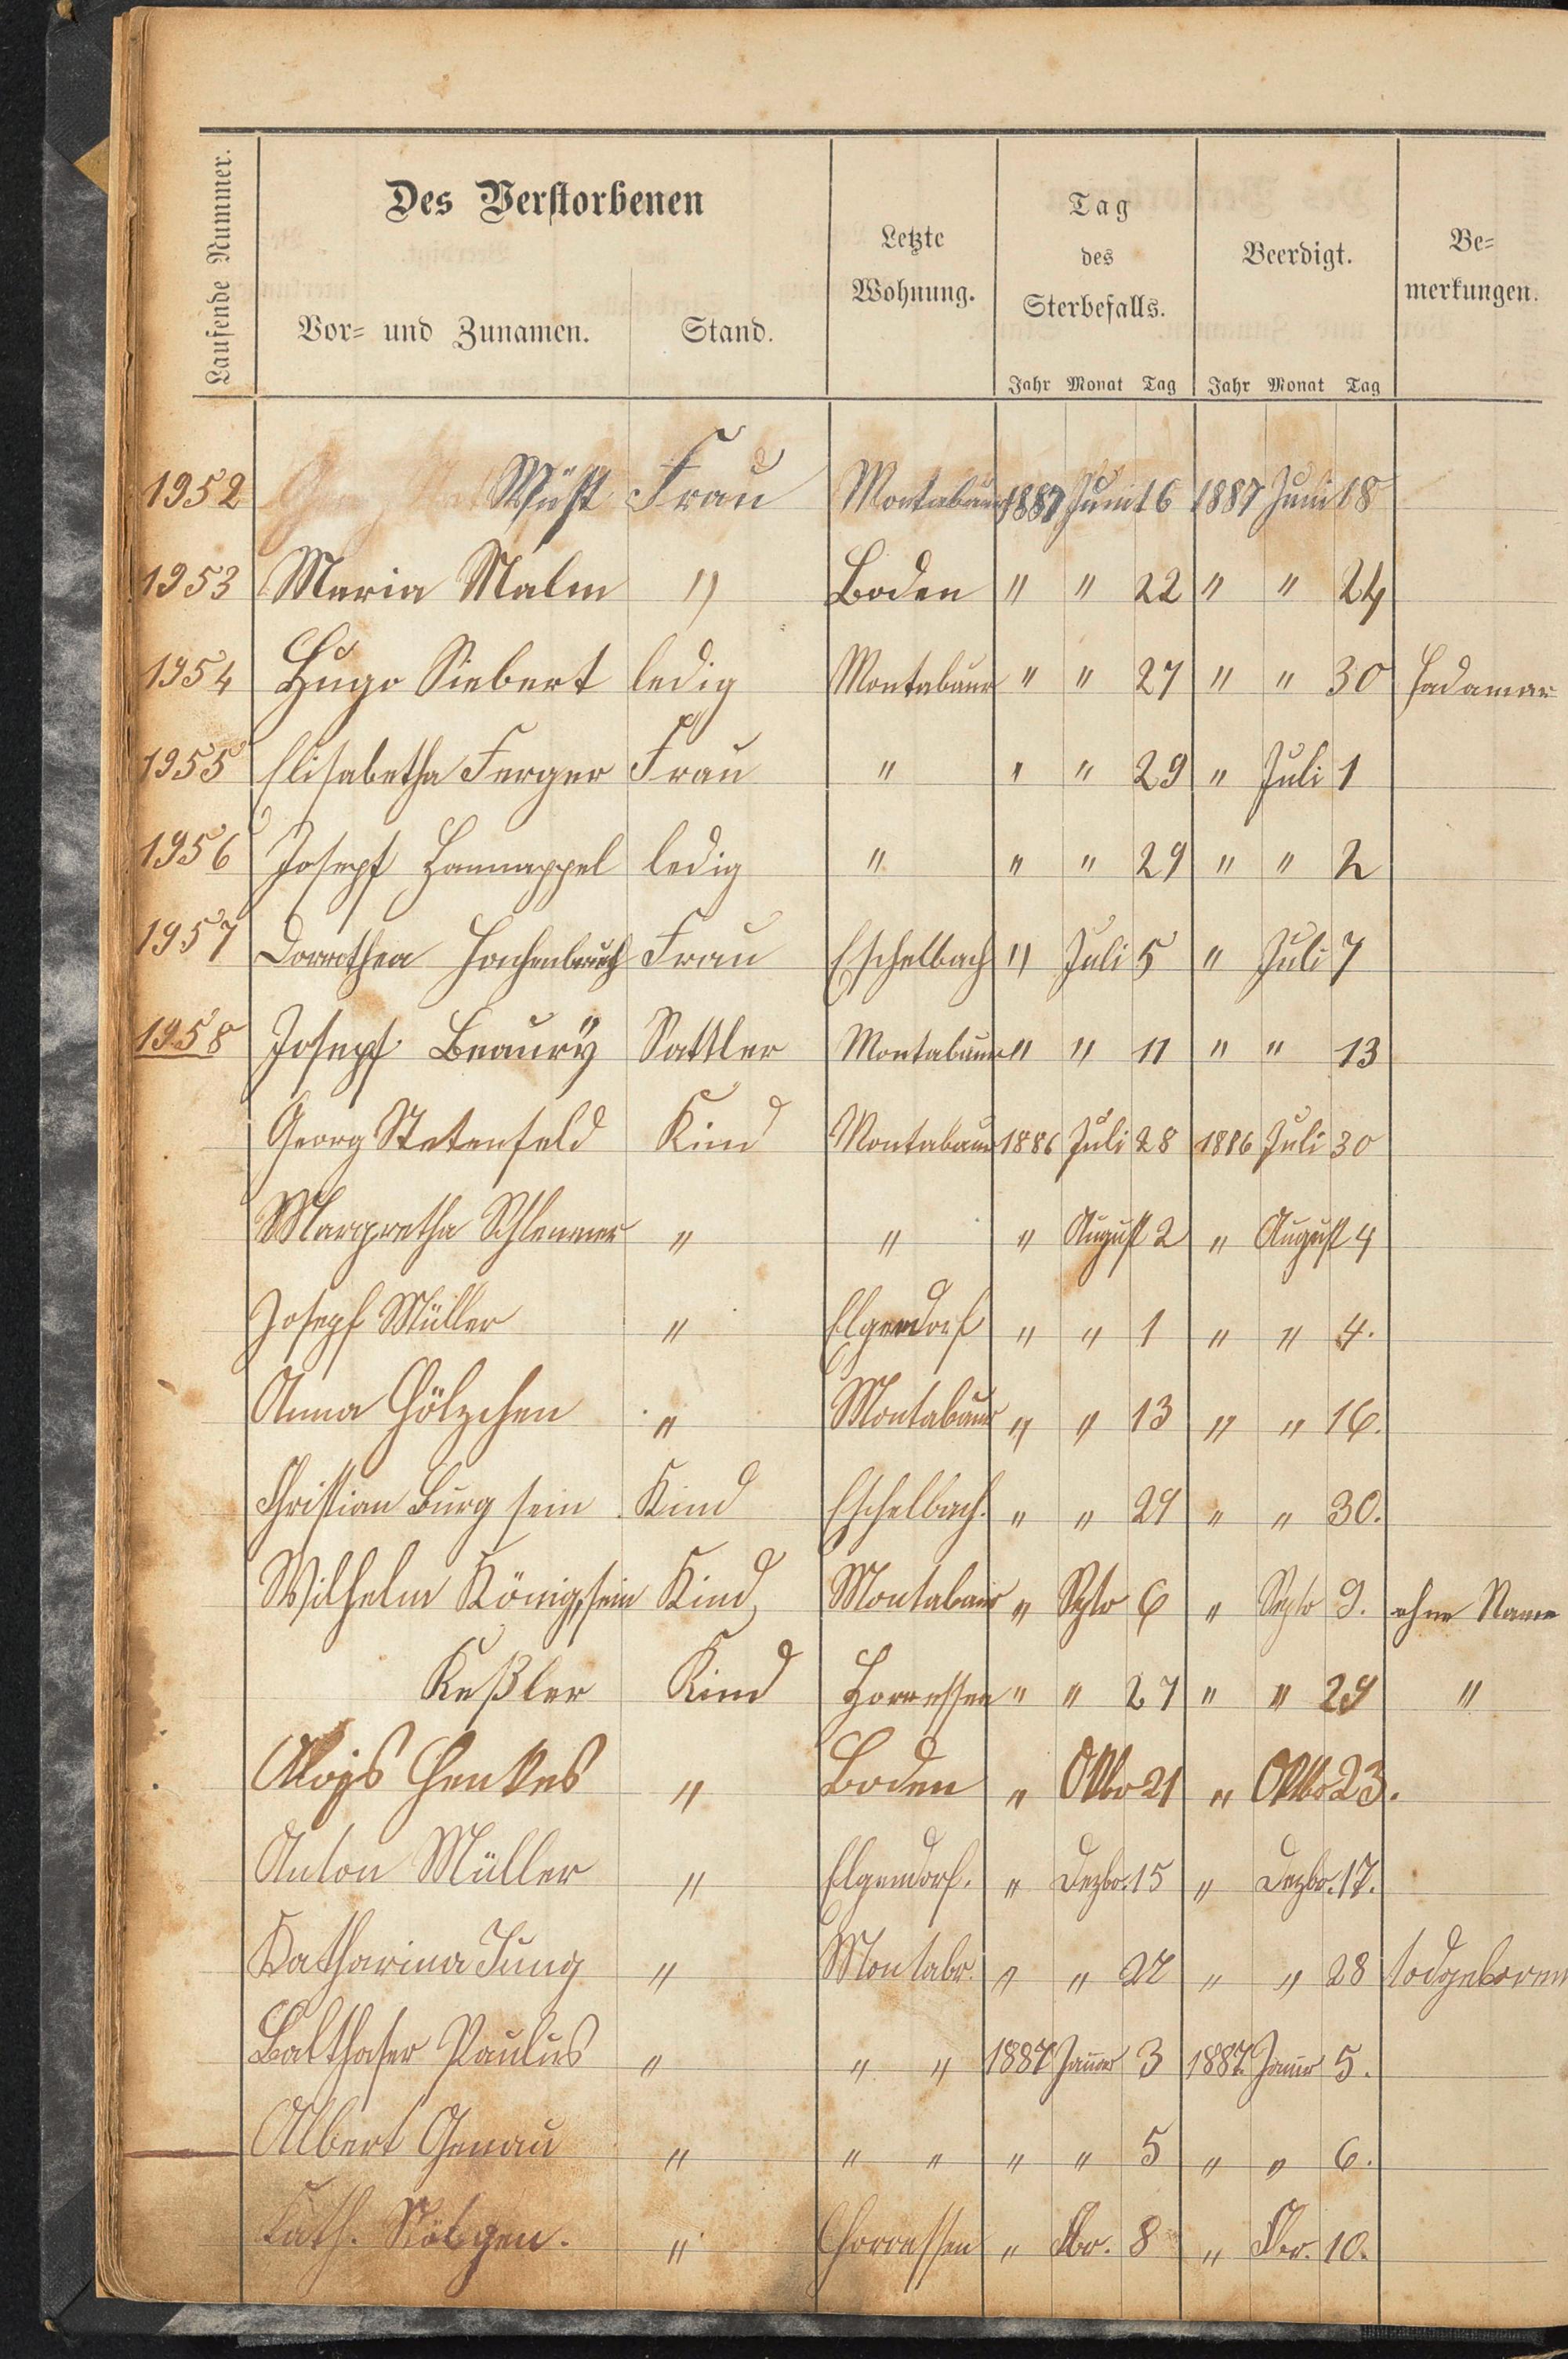 Laufende Nummer.
Des Verstorbenen
Vor- und Zunamen. Stand.
Letzte Wohnung.
Tag des Sterbefalls.
Beerdigt.
Be-
merkungen.
Jahr Monat Tag Jahr Monat Tag
1952 Wüst Frau Montabaur 1887 Juni 16 1887 Juni 18
1953 Maria Malm " Boden " " 22 " " 24
1954 Hugo Siebert ledig Montabaur " " 27 " " 30 Hadamar
1955 Elisabetha Ferger Frau " " " 29 " Juli 1
1956 Josepf Hannappel ledig " " " 29 " " 2
1957 Dorrothea Frau Eschelbach " Juli 5 " Juli 7
1958 Josepf Beaury Sattler Montabaur " " 11 " " 13
Georg Stetenfeld Kind Montabaur 1886 Juli 28 1886 Juli 30
Margretha Schlemmer " " " August 2 " August 4
Josepf Müller " Elgendorf " " 1 " " 4.
Anna Hölzchen " Montabaur " " 13 " " 16.
Christian Burg sein Kind Eschelbach. " " 29 " " 30.
Wilhelm König, sein Kind, Montabaur " Sptr 6 " Septr 9. ohne Name
Keßler Kind Horressen " " 27 " " 29 "
Alojs Henkes " Boden " Oktbr 21 " Oktbr 23.
Anton Müller " Elgendorf. " Dezbr. 15 " Dezbr. 17.
Katharina Jung " Montabr. " " 27 " " 28 todgeboren
Balthaser Paulus " " " 1887 Januar 3 1887. Januar 5.
Albert Genau " " " " " 5 " " 6.
Kath. " Horressen " Fbr. 8 " Fbr. 10.